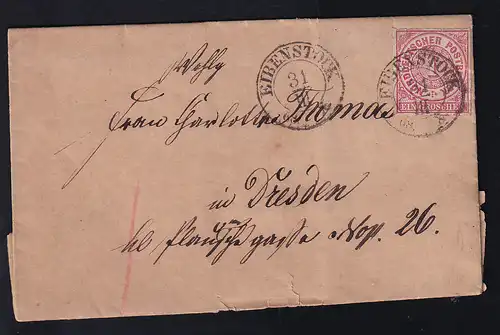 EIBENSTOCK
31
NORDDEUTSCHER POSTBEZIRK
EIN GROSCHEN
EIBENSTOCK
Wohlg
Frau Charlotte Thomas
in Dresden
kl. Plauensche gasse No. 26.